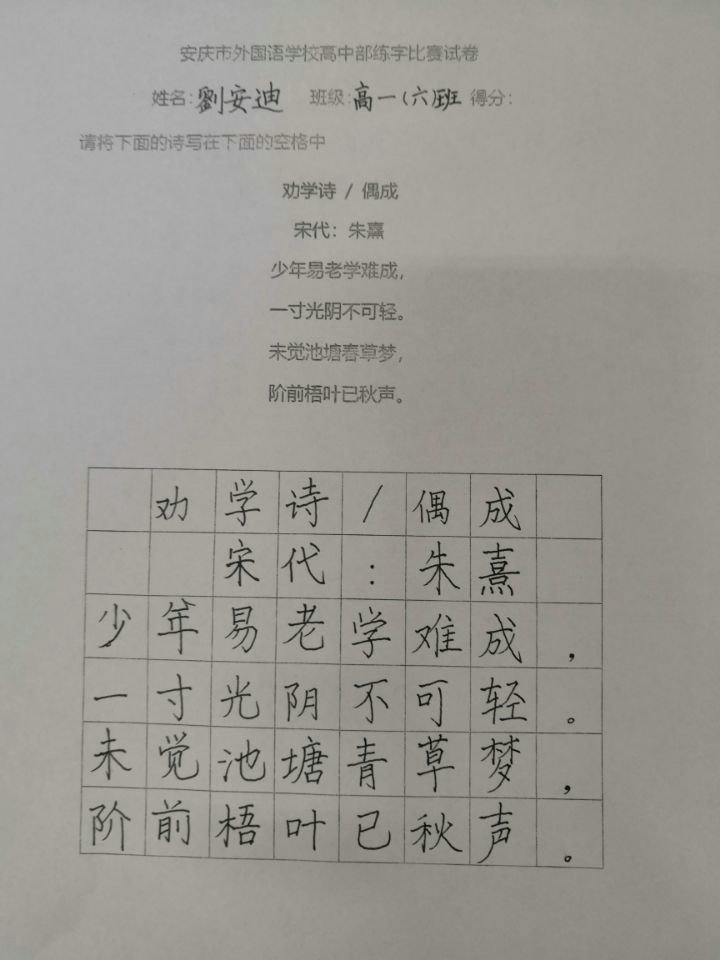 安庆市外国语学校高中部练字比赛试卷
姓名:劉安迪 班级:高一(六)班 得分:
请将下面的诗写在下面的空格中
劝学诗 / 偶成
宋代：朱熹
少年易老学难成，
一寸光阴不可轻。
未觉池塘春草梦，
阶前梧叶已秋声。
劝学诗/偶成
宋代:朱熹
少年易老学难成，
一寸光阴不可轻。
未觉池塘青草梦，
阶前梧叶已秋声。